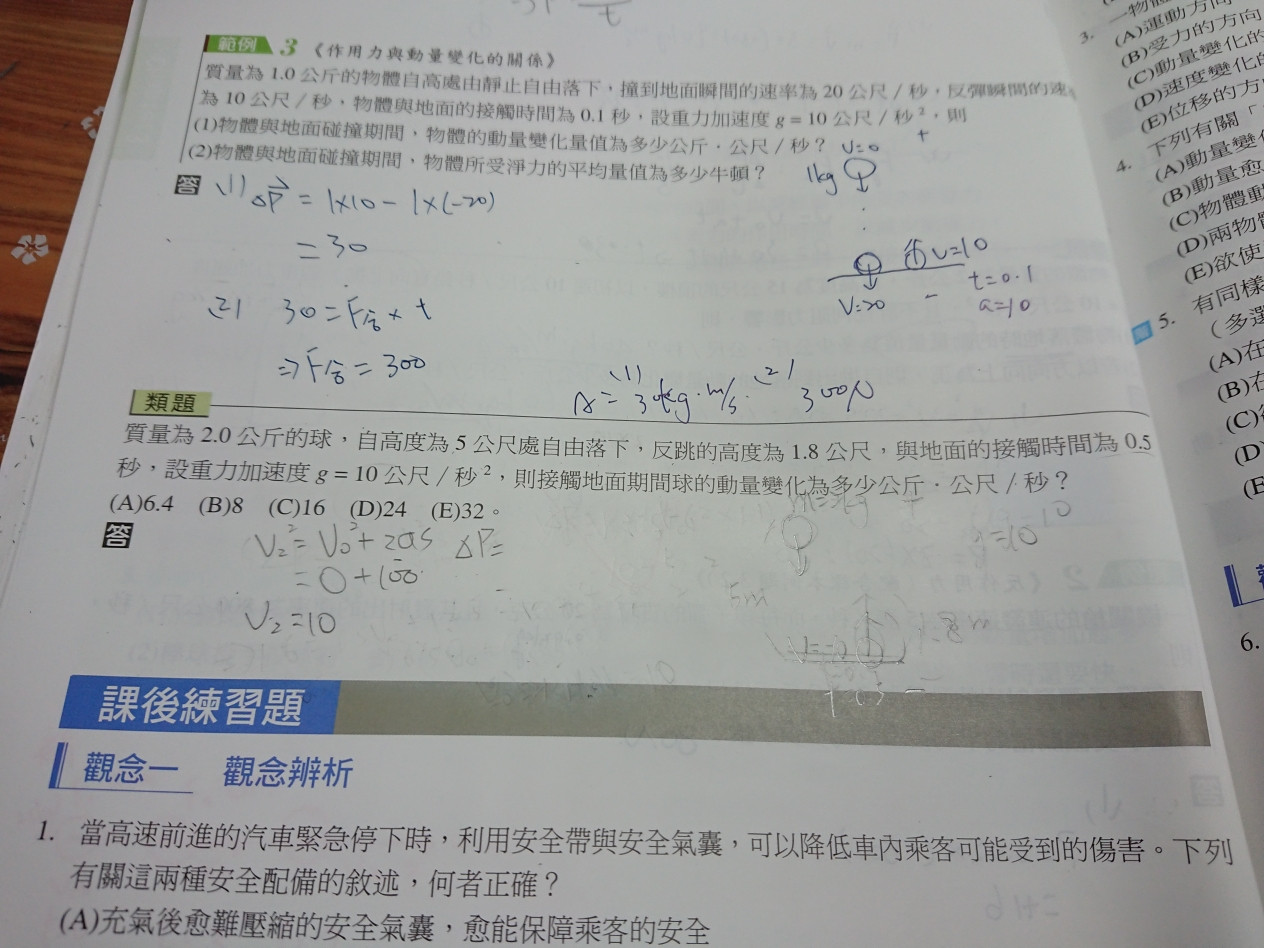 t
範例 3 《作用力與動量變化的關係》
質量為 1.0 公斤的物體自高處由靜止自由落下，撞到地面瞬間的速率為 20 公尺／秒，反彈瞬間的速
為 10 公尺／秒，物體與地面的接觸時間為 0.1 秒，設重力加速度 g = 10 公尺／秒²，則
(1)物體與地面碰撞期間，物體的動量變化量值為多少公斤．公尺／秒？
(2)物體與地面碰撞期間，物體所受淨力的平均量值為多少牛頓？
V=0
+
1kg
答 (1) ΔP = 1×10 − 1×(−20)
= 30
V=10
V=20
−
t=0.1
a=10
(2) 30 = F合 × t
⇒ F合 = 300
(1) 30kg·m/s (2) 300N
類題
質量為 2.0 公斤的球，自高度為 5 公尺處自由落下，反跳的高度為 1.8 公尺，與地面的接觸時間為 0.5
秒，設重力加速度 g = 10 公尺／秒²，則接觸地面期間球的動量變化為多少公斤．公尺／秒？
(A)6.4 (B)8 (C)16 (D)24 (E)32。
答
V₂² = V₀² + 2as ΔP=
= 0 + 100
V₂ = 10
5m
課後練習題
觀念一 觀念辨析
1. 當高速前進的汽車緊急停下時，利用安全帶與安全氣囊，可以降低車內乘客可能受到的傷害。下列
有關這兩種安全配備的敘述，何者正確？
(A)充氣後愈難壓縮的安全氣囊，愈能保障乘客的安全
3. 一物體
(A)運動方向
(B)受力的方向
(C)動量變化的
(D)速度變化的
(E)位移的方
4. 下列有關「
(A)動量變
(B)動量愈
(C)物體動
(D)兩物
(E)欲使
5. 有同樣
（多選
(A)在
(B)在
(C)
(D)
(E)
6.